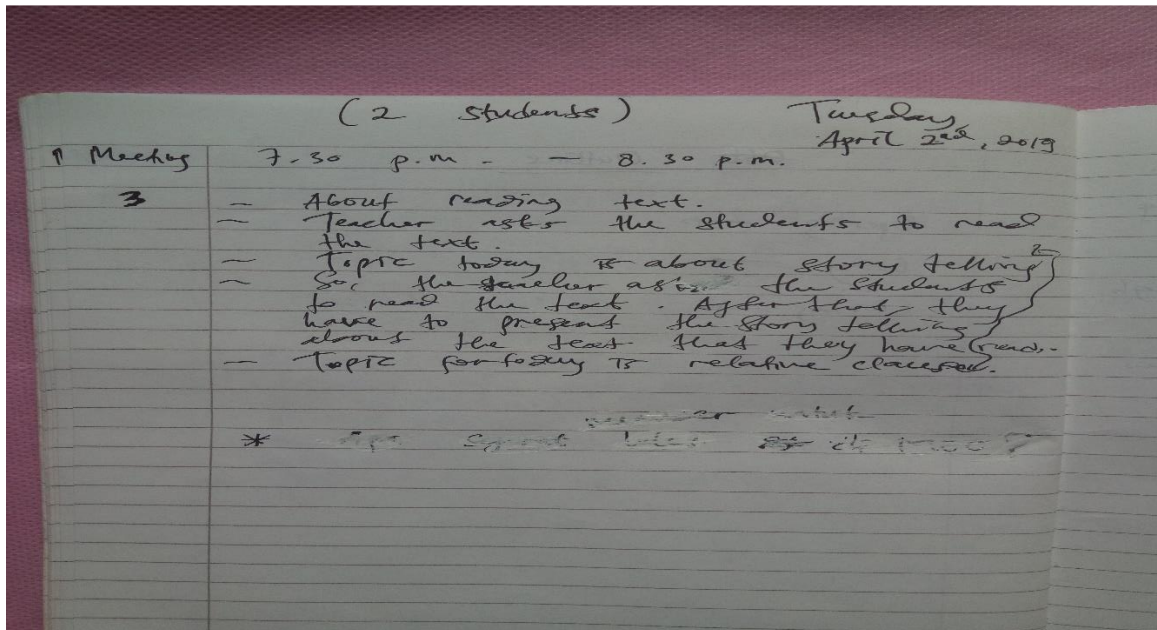 (2 students)
Tuesday
April 2nd, 2019
Meeting 7.30 p.m. - — 8.30 p.m.
3 — About reading text.
— Teacher asks the students to read
the text.
— Topic today is about story telling
— So, the teacher asks the students
to read the text. After that, they
have to present the story telling
about the text that they have read.
— Topic for today is relative clauses.
*